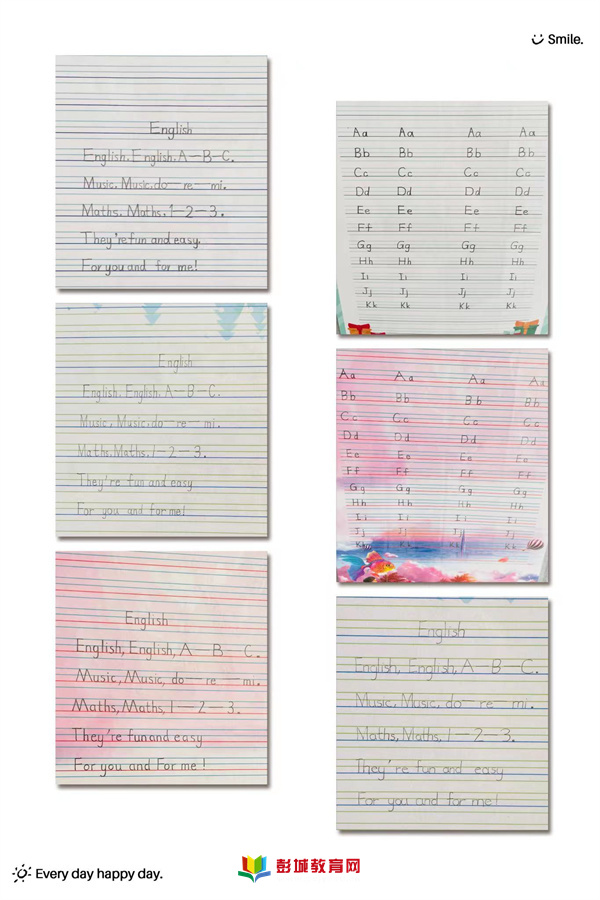 Smile.
English
English, English, A—B—C.
Music, Music, do—re—mi.
Maths, Maths, 1—2—3.
They're fun and easy.
For you and for me!
English
English, English, A—B—C.
Music, Music, do—re—mi.
Maths, Maths, 1—2—3.
They're fun and easy
For you and for me!
English
English, English, A—B—C.
Music, Music, do—re—mi.
Maths, Maths, 1—2—3.
They're fun and easy
For you and For me!
Aa Aa Aa Aa
Bb Bb Bb Bb
Cc Cc Cc Cc
Dd Dd Dd Dd
Ee Ee Ee Ee
Ff Ff Ff Ff
Gg Gg Gg Gg
Hh Hh Hh Hh
Ii Ii Ii Ii
Jj Jj Jj Jj
Kk Kk Kk Kk
Aa Aa Aa Aa
Bb Bb Bb Bb
Cc Cc Cc Cc
Dd Dd Dd Dd
Ee Ee Ee Ee
Ff Ff Ff Ff
Gg Gg Gg Gg
Hh Hh Hh Hh
Ii Ii Ii Ii
Jj Jj Jj Jj
Kk Kk Kk Kk
English
English, English, A—B—C.
Music, Music, do—re—mi.
Maths, Maths, 1—2—3.
They're fun and easy
For you and for me!
Every day happy day.
彭城教育网